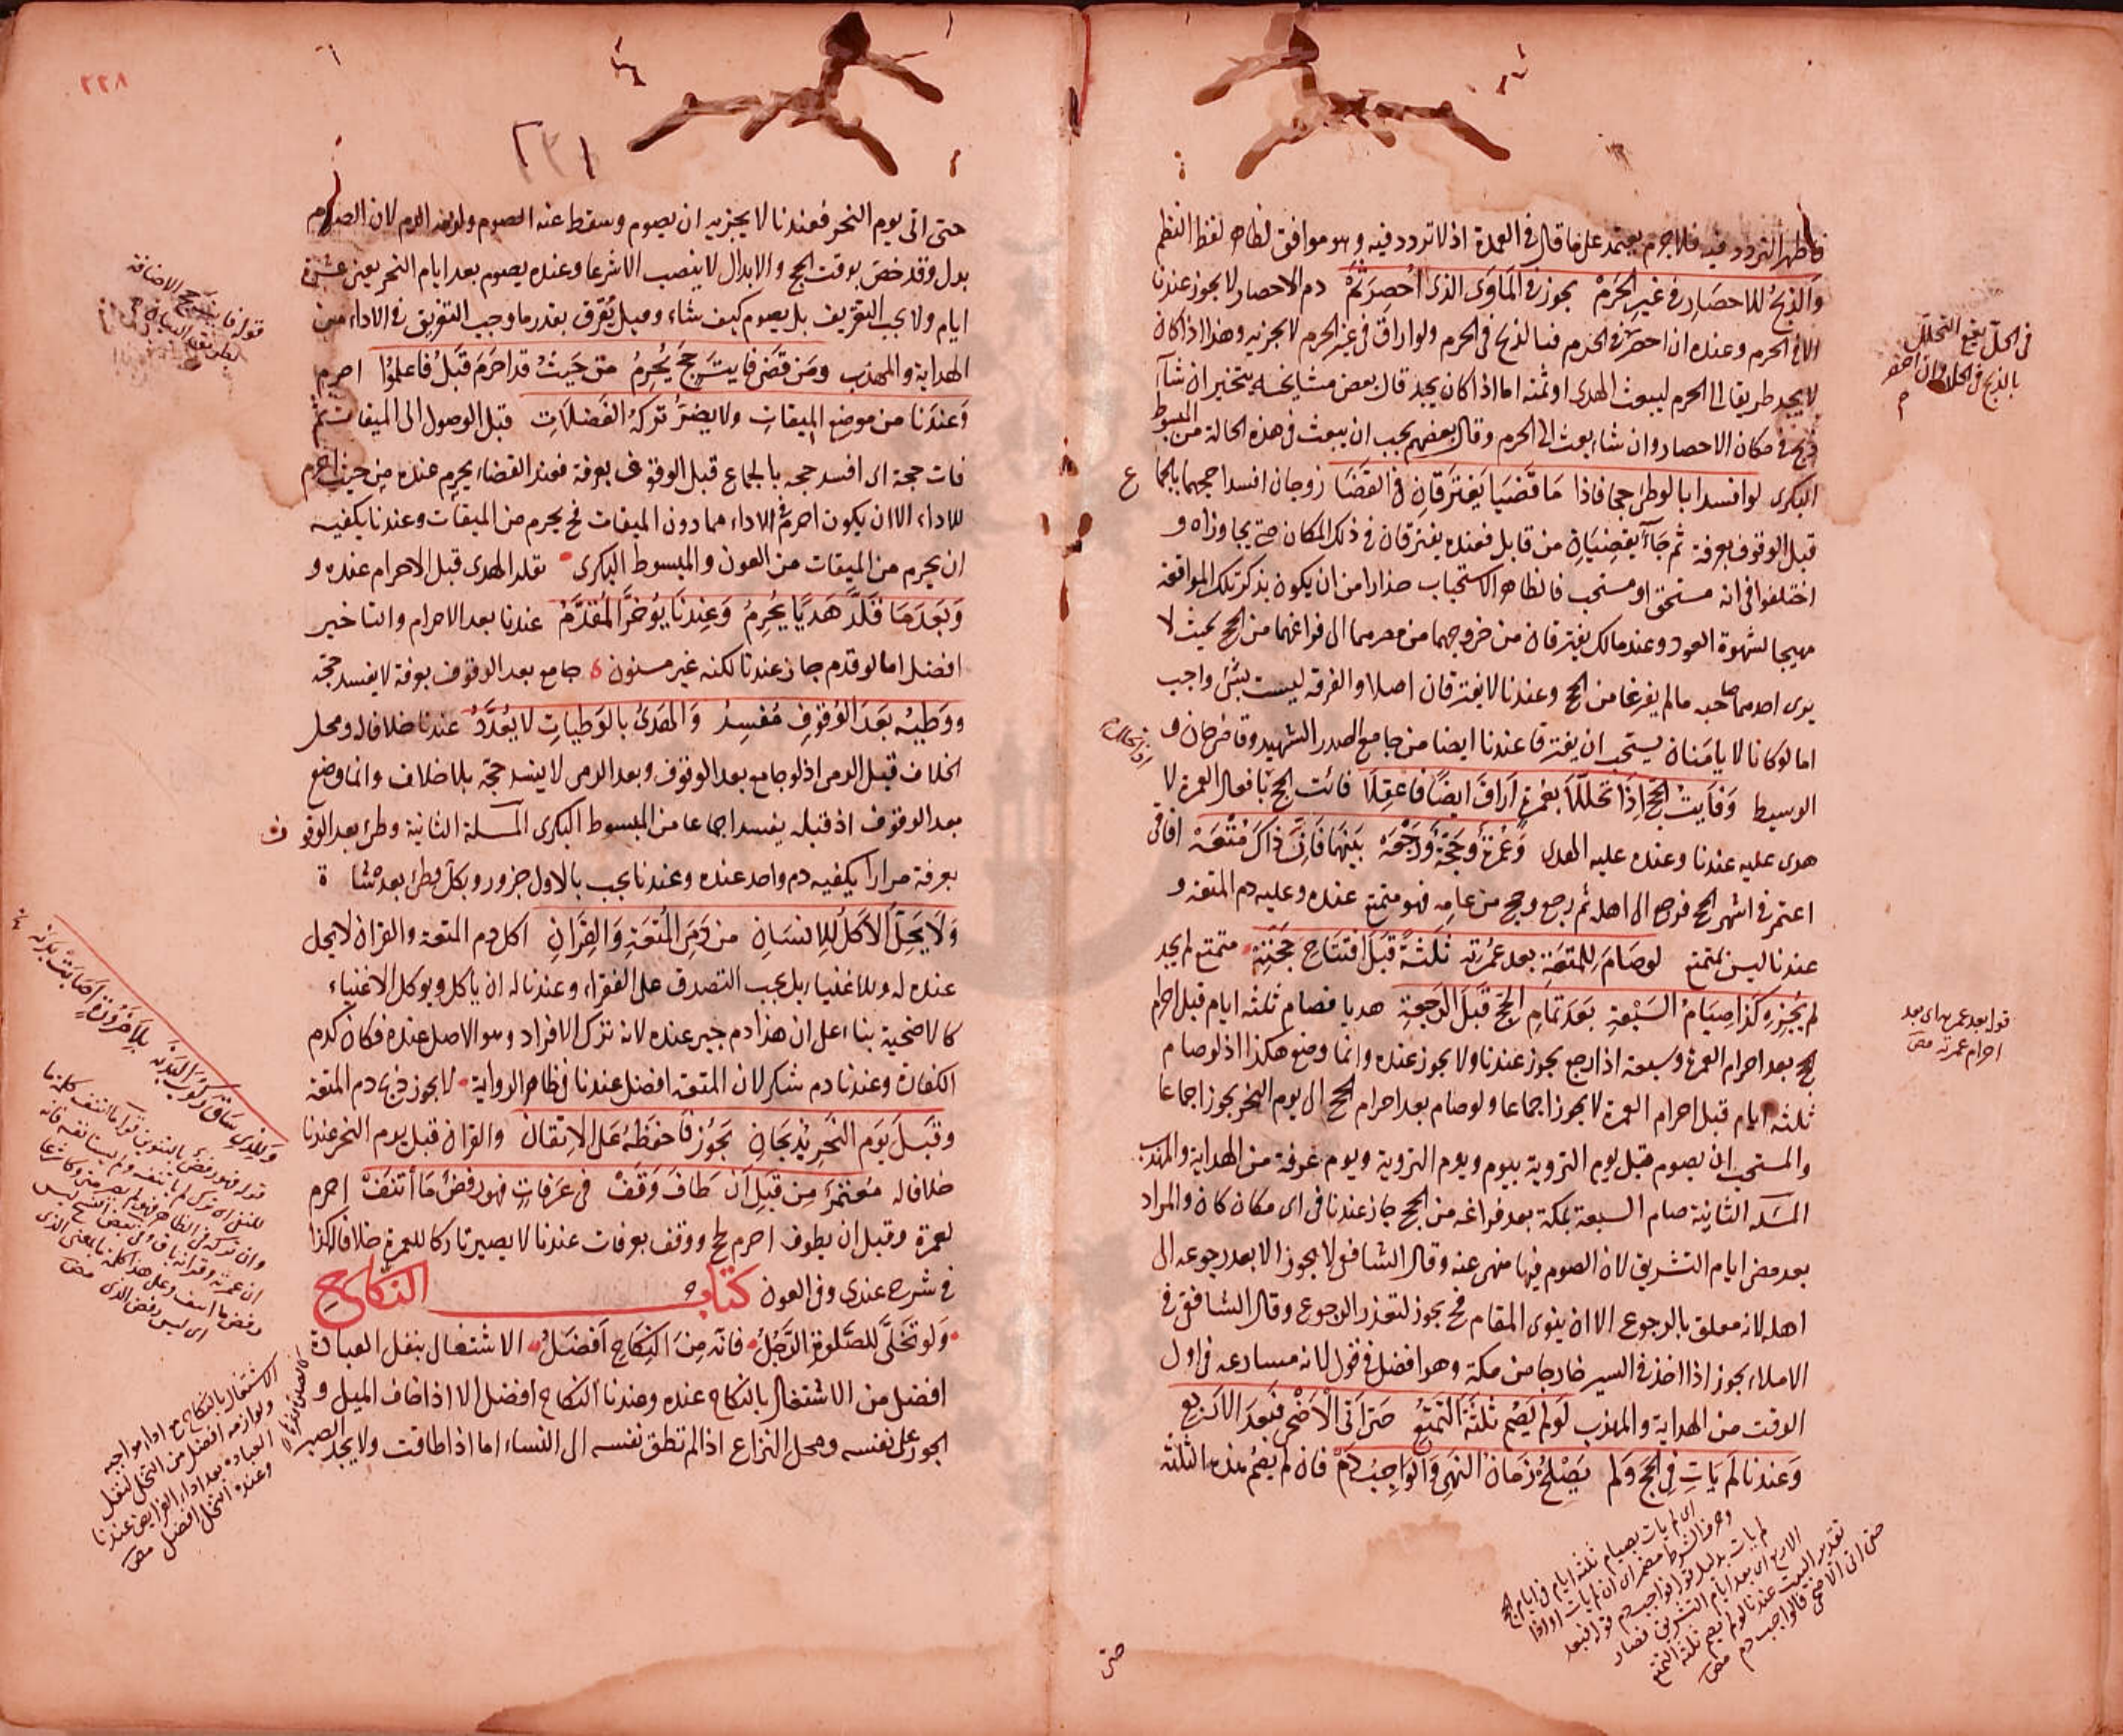 فاظهر التردد فيه فلاجرم يعتمد على ما قال في العمدة اذ لا تردد فيه وهو موافق لظاهر لفظ النظم
وَالذبحُ للاحصَارِ في غيرِ الحَرَمْ يجوز في المَاوَى الذى اُحصِرَ ثَمْ دم الاحصار لا يجوز عندنا
الا في الحرم وعنده ان احصر في الحرم فبالذبح في الحرم ولو اراق في غير الحرم لا يجزيه وهذا اذا كان
لا يجد طريقا الى الحرم ليبعث الهدى او ثمنه اما اذا كان يجد قال بعض مشايخه يتخير ان شاء
ذبح في مكان الاحصار وان شاء بعث الى الحرم وقال بعضهم يجب ان يبعث في هذه الحالة من المبسوط
البكرى لو افسدا بالوطئ حجا فاذا مَا قَضَيَا يَفتَرَقانِ في القضَا زوجان افسدا حجهما بالجماع
قبل الوقوف بعرفة ثم جَاآ يقضِيَانِ من قابل فعنده يفترقان في ذلك المكان حتى يجاوزاه و
اختلفوا في انه مستحق او مستحب فالظاهر الاستحباب حذارا من ان يكون بذكر تلك المواقعة
مهيجا لشهوة العود وعند مالك يفترقان من خروجهما من محرمهما الى فراغهما من الحج بحيث لا
يرى احدهما صاحبه مالم يفرغا من الحج وعندنا لا يفترقان اصلا والفرقة ليست بشئ واجب
اما لو كانا لا يامَنان يستحب ان يفترقا عندنا ايضا من جامع الصدر الشهيد وقاضى خان و
الوسيط وَفَايتُ الحَجِ اِذَا تَحلَّلَا بعُمرةٍ اَرَاقَ ايضًا فاعقِلَا فائت الحج بافعال العمرة لا
هدى عليه عندنا وعنده عليه الهدى وَعُمْرةٌ وَحَجَّةٌ وَرَجْعَه بَينَهمَا فَاِنَّ ذاكَ مُتْعَهْ افاقى
اعتمر في اشهر الحج فرجع الى اهله ثم رجع وحج من عامه فهو متمتع عنده وعليه دم المتعة و
عندنا ليس بمتمتع لوصَامَ للمتعَةِ بعد عُمرَتِهِ ثلثةً قبَلَ افتتاحِ حَجّتِهِ متمتع لم يجد
لم يُجْزِهِ وكذا صِيَامُ السَبْعَةِ بَعدَ تمَامِ الحَجِّ قَبْلَ الرَجعةِ هديا فصام ثلثة ايام قبل احرام
الحج بعد احرام العمرة وسبعة اذا رجع يجوز عندنا ولا يجوز عنده وانما وضع هكذا اذ لو صام
ثلثة ايام قبل احرام العمرة لا يجوز اجماعا ولو صام بعد احرام الحج الى يوم النحر يجوز اجماعا
والمستحب ان يصوم قبل يوم التروية بيوم ويوم التروية ويوم عرفة من الهداية والمهذب
المسئلة الثانية صام السبعة بمكة بعد فراغه من الحج جاز عندنا في اى مكان كان والمراد
بعد مضى ايام التشريق لان الصوم فيها منهى عنه وقال الشافعى لا يجوز الا بعد رجوعه الى
اهله لانه معلق بالرجوع الا ان ينوى المقام فح يجوز لتعذر الرجوع وقال الشافعى في
الاملاء يجوز اذا اخذ في السير خارجا من مكة وهو افضل في قول لانه مسارعة في اول
الوقت من الهداية والمهذب لَو لم يَصُم ثلثَةَ التمتُّع حَتى اَتى الاَضْحى فبَعدَ الاَربَع
وَعندنا لَم يَاتِ في الحَجّ وَلَم يَصْلُحْ زَمَان النَهي وَالوَاجِبُ دَمْ فان لم يصم هذه الثلثة
في الحل يقع التحلل
بالذبح في الحل وان احصر
قوله بعد عمرته اى بعد
احرام عمرته مص
اى لم يات بصيام ثلثة ايام في ايام الحج
وحرف الشرط مضمر اى ان لم يات
لم يات بدليل قوله فواجب دم قوله فبعد
الاربع اى بعد ايام التشريق فصار
تقدير البيت عندنا لو لم يصم ثلثة التمتع
حتى اتى الاضحى فالواجب دم مص
حتى
٢٢٨
٢٣١
حتى اتى يوم النحر فعندنا لا يجزيه ان يصوم وسقط عنه الصوم ولزمه الدم لان الصوم
بدل وقد خص بوقت الحج والابدال لا ينصب الا شرعا وعنده يصوم بعد ايام النحر يعنى عشرة
ايام ولا يجب التفريق بل يصوم كيف شاء وقيل يُفرق بقدر ما وجب التفريق في الاداء من
الهداية والمهذب ومَن قَضى فايتَ حَجّ يُحرِمُ مِن حَيثُ قد احرَمَ قَبلُ فاعلموُا احرم
وَعندَنا من موضِع الميقاتِ ولا يضرُّ تركهُ الفَضلاَتِ قبل الوصول الى الميقات ثم
فات حجة اى افسد حجه بالجماع قبل الوقوف بعرفة فعند القضاء يحرم عنده من حيث احرم
للاداء الا ان يكون احرم في الاداء مما دون الميقات فح يحرم من الميقات وعندنا يكفيه
ان يحرم من الميقات من العون والمبسوط البكرى تقلد الهدى قبل الاحرام عنده و
وَبَعدَ مَا قَلَّدَ هَديًا يُحرِمُ وَعِندنَا يُؤخرُ المُقدَّمُ عندنا بعد الاحرام والتاخير
افضل اما لو قدم جاز عندنا لكنه غير مسنون جامع بعد الوقوف بعرفة لا يفسد حجه
ووَطيُه بَعدَ الوُقوفِ مُفسِدُ وَالهَدىُ بالوَطياتِ لا يُعدَّدُ عندنا خلافا له ومحل
الخلاف قبل الرمى اذ لو جامع بعد الوقوف وبعد الرمى لا يفسد حجه بلا خلاف وانما وضع
بعد الوقوف اذ قبله يفسد اجماعا من المبسوط البكرى المسئلة الثانية وطئ بعد الوقوف
بعرفة مرارا يكفيه دم واحد عنده وعندنا يجب بالاول جزور وبكل وطئ بعده شاة
وَلاَ يَحِلّ الاَكلُ للاِنسَانِ من دَمِ المُتعَةِ وَالقِرَانِ اكل دم المتعة والقران لا يحل
عنده له وللاغنياء بل يجب التصدق على الفقراء وعندنا له ان ياكل ويوكل الاغنياء
كالاضحية بناء على ان هذا دم جبر عنده لانه ترك الافراد وهو الاصل عنده فكان كدم
الكفارة وعندنا دم شكر لان المتعة افضل عندنا في ظاهر الرواية لا يجوز ذبح دم المتعة
وقَبلَ يَومِ النَحرِ يُذبَحَانِ يَجُوز فَاحفَظهُ عَلى الاِتقان والقران قبل يوم النحر عندنا
خلافا له مُعتمرٌ مِن قَبلِ اَن طَافَ وَقَفْ في عَرفاتٍ فهو رفضٌ مَا أتنَفْ احرم
لعمرة وقبل ان يطوف احرم لحج ووقف بعرفات عندنا لا يصير تاركا للعمرة خلافا له كذا
في شرح عندى وفى العون كتاب النكاح
وَلو تَخَلَّى للصَّلوةِ الرَّجُلُ فانّه مِنَ النِكاحِ اَفضَلُ الاشتغال بنفل العبادة
افضل من الاشتغال بالنكاح عنده وعندنا النكاح افضل الا اذا خاف الميل و
الجور على نفسه ومحل النزاع اذا لم تطق نفسه الى النساء اما اذا طاقت ولا يجد الصبر
وللذى سَاق ركوب البَدَنه بلا ضرورةٍ اَصَابَت بدنه
الاشتغال بالنكاح مع اداء مواجبه
ولوازمه افضل من التخلى لنفل
العبادة بعد اداء الفرايض عندنا
وعنده التخلى افضل مص